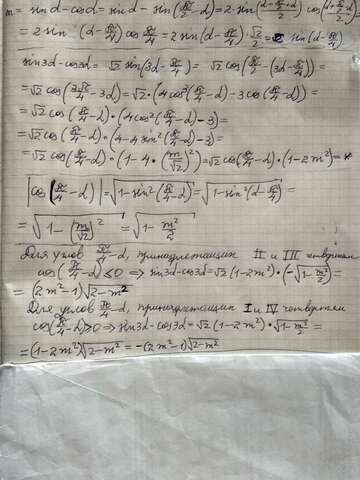 m = sin α - cos α = sin α - sin(π/2 - α) = 2·sin((α - π/2 + α)/2) cos((α + π/2 - α)/2)
= 2 sin (α - π/4) cos π/4 = 2 sin(α - π/4) · √2/2 = √2 sin(α - π/4)
sin3α - cos3α = √2 sin(3α - π/4) = √2 cos(π/2 - (3α - π/4)) =
= √2 cos(3π/4 - 3α) = √2 · (4cos³(π/4 - α) - 3 cos(π/4 - α)) =
= √2 cos(π/4 - α) · (4cos²(π/4 - α) - 3) =
= √2 cos(π/4 - α) · (4 - 4 sin²(π/4 - α) - 3) =
= √2 cos(π/4 - α) · (1 - 4 · (m/√2)²) = √2 cos(π/4 - α) · (1 - 2m²) = *
|cos(π/4 - α)| = √(1 - sin²(π/4 - α)) = √(1 - sin²(α - π/4)) =
= √(1 - (m/√2)²) = √(1 - m²/2)
Для углов π/4 - α, принадлежащих II и III четвертям
cos(π/4 - α) ≤ 0 ⇒ sin3α - cos3α = √2 (1 - 2m²) · (-√(1 - m²/2)) =
= (2m² - 1)√(2 - m²)
Для углов π/4 - α, принадлежащих I и IV четвертям
cos(π/4 - α) ≥ 0 ⇒ sin3α - cos3α = √2 (1 - 2m²) · √(1 - m²/2) =
= (1 - 2m²)√(2 - m²) = -(2m² - 1)√(2 - m²)